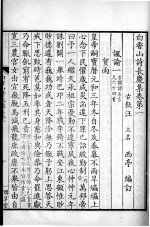 白香山詩長慶集卷第一
古歙汪　立名　西亭　編訂
諷諭一
古調詩五言
凡六十四首
賀雨
皇帝嗣寶歷元和三年冬自冬及春暮不雨旱爞爞上心
念下民懼歲成災凶遂下罪己詔殷勤告萬邦帝
曰予一人繼天承祖宗憂勤不遑寧夙夜心忡忡元年
誅劉闢一舉靖巴邛二年戮李錡不戰安江東顧惟眇
眇德遽有巍巍功或者天降沴無乃儆予躬上思答天
戒下思致時邕莫如率其身慈和與儉恭乃命罷進獻
乃命賑饑窮宥死降五刑已責
寬三農宮女出宣徽廄馬減飛龍庶政靡不舉皆出自